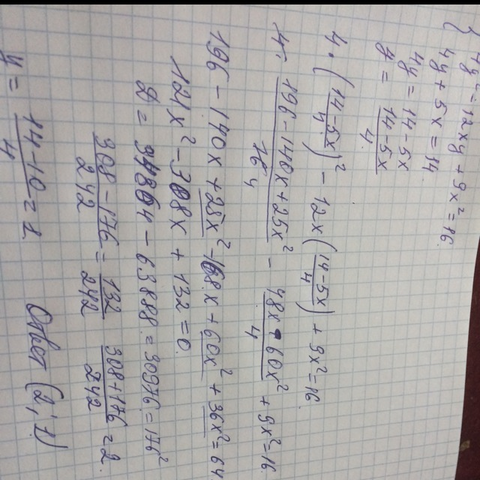 { 4y² - 12xy + 9x² = 16
4y + 5x = 14
4y = 14 - 5x
y = (14 - 5x)/4
4 · ((14 - 5x)/4)² - 12x((14 - 5x)/4) + 9x² = 16
196 - 140x + 25x² - 168x + 60x² + 36x² = 64
121x² - 308x + 132 = 0
D = 94864 - 63888 = 30976 = 176²
(308 - 176)/242 = 132/242 (308 + 176)/242 = 2
y = (14 - 10)/4 = 1 Ответ (2; 1)